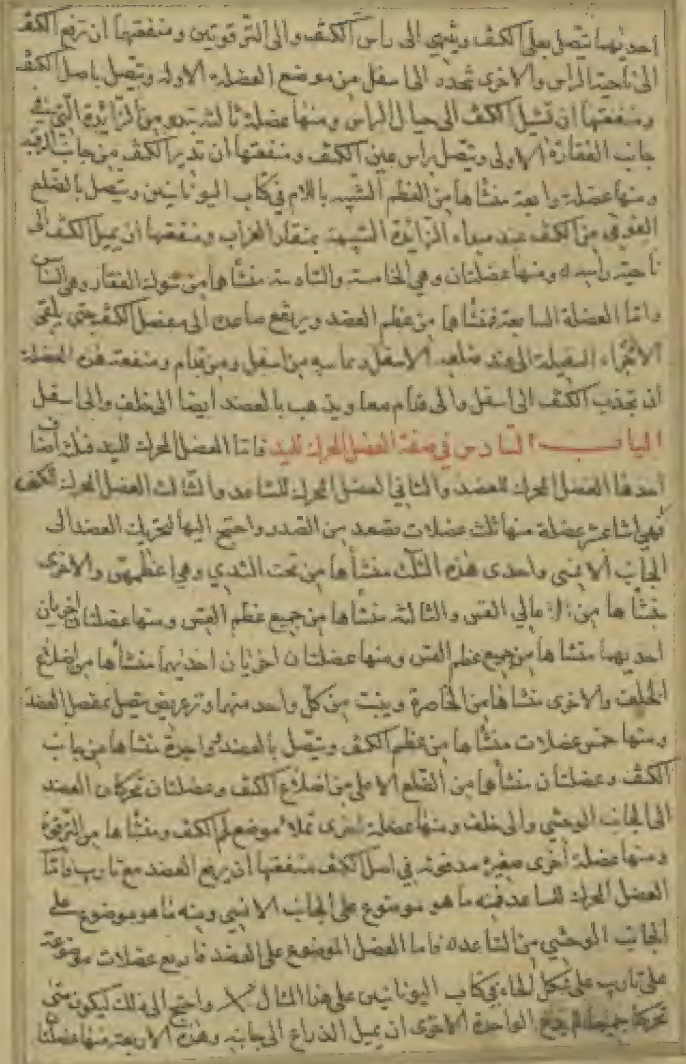 احديهما تتصل بعلى الكتف وينتهى الى راس الكتف والى الترقوتين ومنفعتها ان ترفع الكتف
الى ناحية الراس والاخرى تنحدر الى اسفل من موضع العضلة الاولة ويتصل باصل الكتف
ومنفعتها ان تشيل الكتف الى حيال الراس ومنها عضلة ثالثة تبتدى من الزايدة التى فى
جانب الفقارة الاولى ويتصل براس عين الكتف ومنفعتها ان تدير الكتف من جانب الرقبة
ومنها عضلة رابعة منشاها من العظم الشبيه باللام فى كتاب اليونانيين ويتصل بالضلع
الفوقى من الكتف عند مبداء الزائدة الشبيهة بمنقار الغراب ومنفعتها ان يميل الكتف الى
ناحية راسه ومنها عضلتان وهى الخامسة والسادسة منشاها من شوك الفقار وهى
واما العضلة السابعة فمنشاها من عظم العضد ويرتفع صاعدا الى مفصل الكتف حتى يلقى
الاجزاء السفيلة الى عند ضلعه الاسفل وما يليه من اسفل ومن قدام ومنفعة هذه العضلة
ان تجذب الكتف الى اسفل والى قدام معا ويذهب بالعضد ايضا الى خلف والى اسفل
الباب السادس فى صفة العضل المحرك لليد فاما العضل المحرك لليد فثلث اصناف
احدها العضل المحرك للعضد والثانى العضل المحرك للساعد والثالث العضل المحرك للكف
فهى اثنا عشر عضلة منها ثلث عضلات تصعد من الصدر واحتج اليها لتحريك العضد الى
الجانب الانسى واحدى هذه الثلث منشأها من تحت الثدى وهى اعظمهن والاخرى
منشأها من اعالى القس والثالثة منشأها من جميع عظم القس ومنها عضلتان اخريان
احديهما منشأها من جميع عظم القس ومنها عضلتان اخريان احديهما منشأها من اضلاع
الخلف والاخرى منشأها من الخاصرة وينبت من كل واحد منهما وتر عريض يتصل بمفصل العضد
ومنها خمس عضلات منشأها من عظم الكتف ويتصل بالعضد واحدة منشأها من جانب
الكتف وعضلتان منشأها من الضلع الاعلى من اضلاع الكتف وعضلتان تحركان العضد
الى الجانب الوحشى والى خلف ومنها عضلة اخرى تملا موضع لحم الكتف ومنشأها من الترقوة
ومنها عضلة اخرى صغيرة مدفونة فى اصل الكتف منفعتها ان يرفع العضد مع تاريب واما
العضل المحرك للساعد فمنه ما هو موضوع على الجانب الانسى ومنه ما هو موضوع على
الجانب الوحشى من الساعد فاما العضل الموضوع على العضد فاربع عضلات موضوعة
على تاريب على شكل الخاء فى كتاب اليونانيين على هذا المثال X واحتج الى ذلك ليكون متى
تحركتا جميعا الواحدة الاخرى ان يميل الذراع الى جانبه وهذه الاربعة منها عضلتان